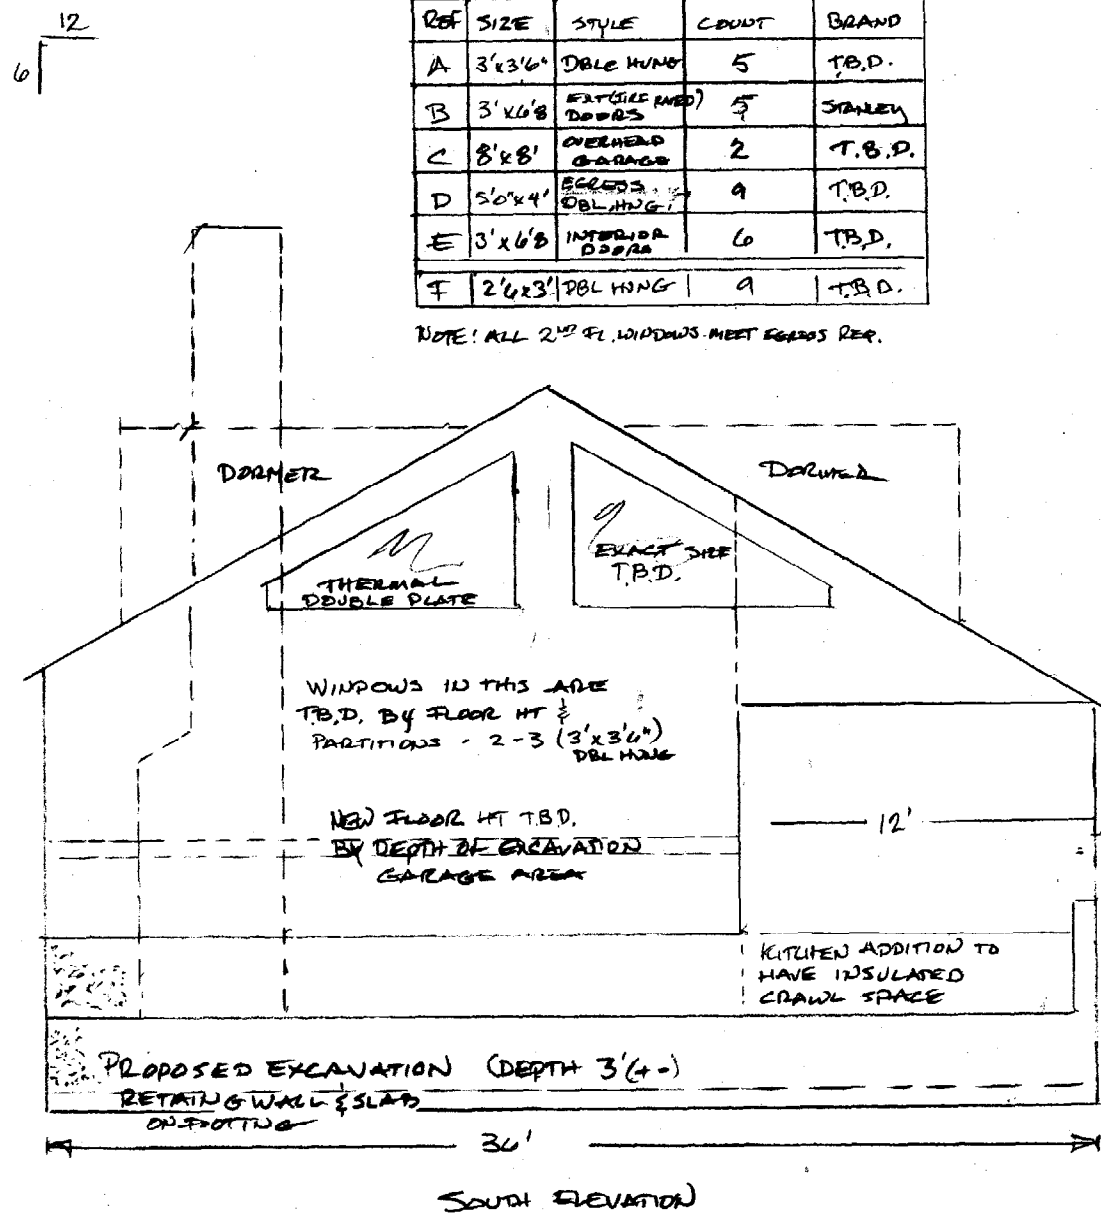 12
6
REF SIZE STYLE COUNT BRAND
A 3'x3'6" DBLE HUNG 5 T.B.D.
B 3'x6'8 EXT (FIRE RATED) DOORS 5 STANLEY
C 8'x8' OVERHEAD GARAGE 2 T.B.D.
D 5'0"x4' EGRESS DBL. HNG. 9 T.B.D.
E 3'x6'8 INTERIOR DOORS 6 T.B.D.
F 2'6x3' DBL HUNG 9 T.B.D.
NOTE: ALL 2ND FL. WINDOWS MEET EGRESS REQ.
DORMER
DORMER
THERMAL
DOUBLE PLATE
EXACT SIZE
T.B.D.
WINDOWS IN THIS ARE
T.B.D. BY FLOOR HT &
PARTITIONS - 2-3 (3'x3'6")
DBL HUNG
NEW FLOOR HT T.B.D.
BY DEPTH OF EXCAVATION
GARAGE AREA
12'
KITCHEN ADDITION TO
HAVE INSULATED
CRAWL SPACE
PROPOSED EXCAVATION (DEPTH 3'(+-)
RETAING WALL & SLAB
ON FOOTING
36'
SOUTH ELEVATION